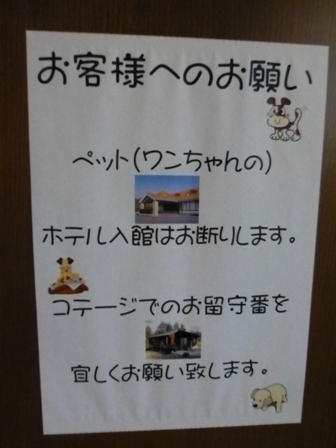 お客様へのお願い
ペット(ワンちゃんの)
ホテル入館はお断りします。
コテージでのお留守番を
宜しくお願い致します。